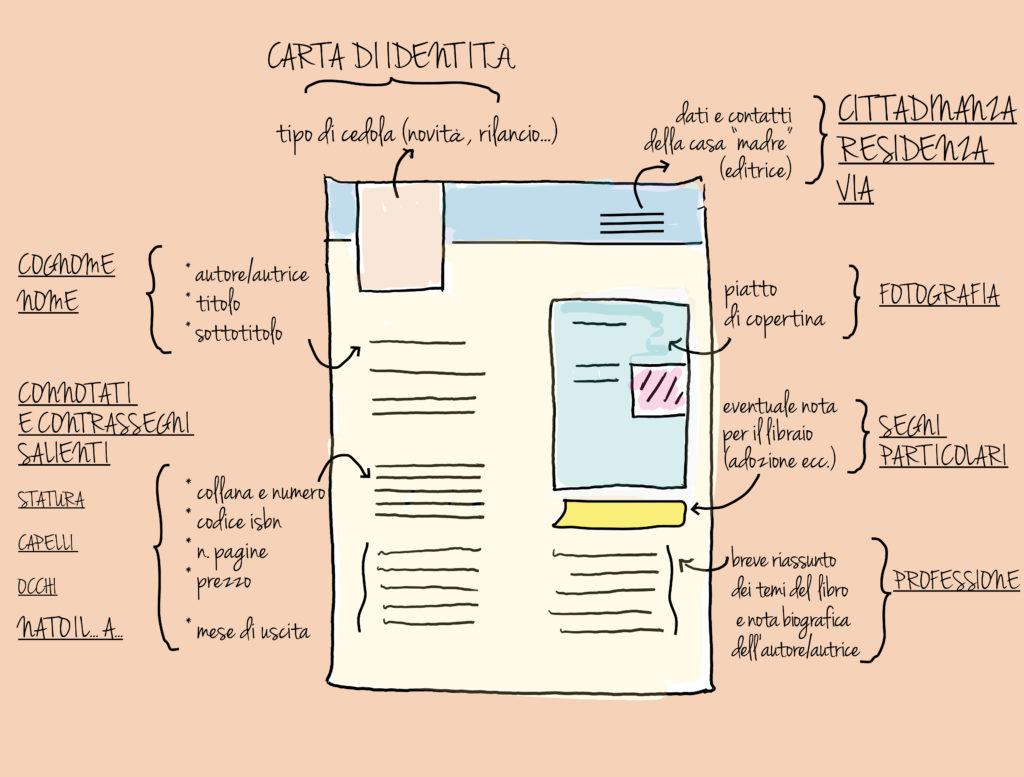 CARTA DI IDENTITÀ
tipo di cedola (novità, rilancio...)
dati e contatti
della casa "madre"
(editrice)
CITTADINANZA
RESIDENZA
VIA
COGNOME
NOME
* autore/autrice
* titolo
* sottotitolo
piatto
di copertina
FOTOGRAFIA
CONNOTATI
E CONTRASSEGNI
SALIENTI
STATURA
CAPELLI
OCCHI
NATO IL... A...
* collana e numero
* codice isbn
* n. pagine
* prezzo
* mese di uscita
eventuale nota
per il libraio
(adozione ecc.)
SEGNI
PARTICOLARI
breve riassunto
dei temi del libro
e nota biografica
dell'autore/autrice
PROFESSIONE